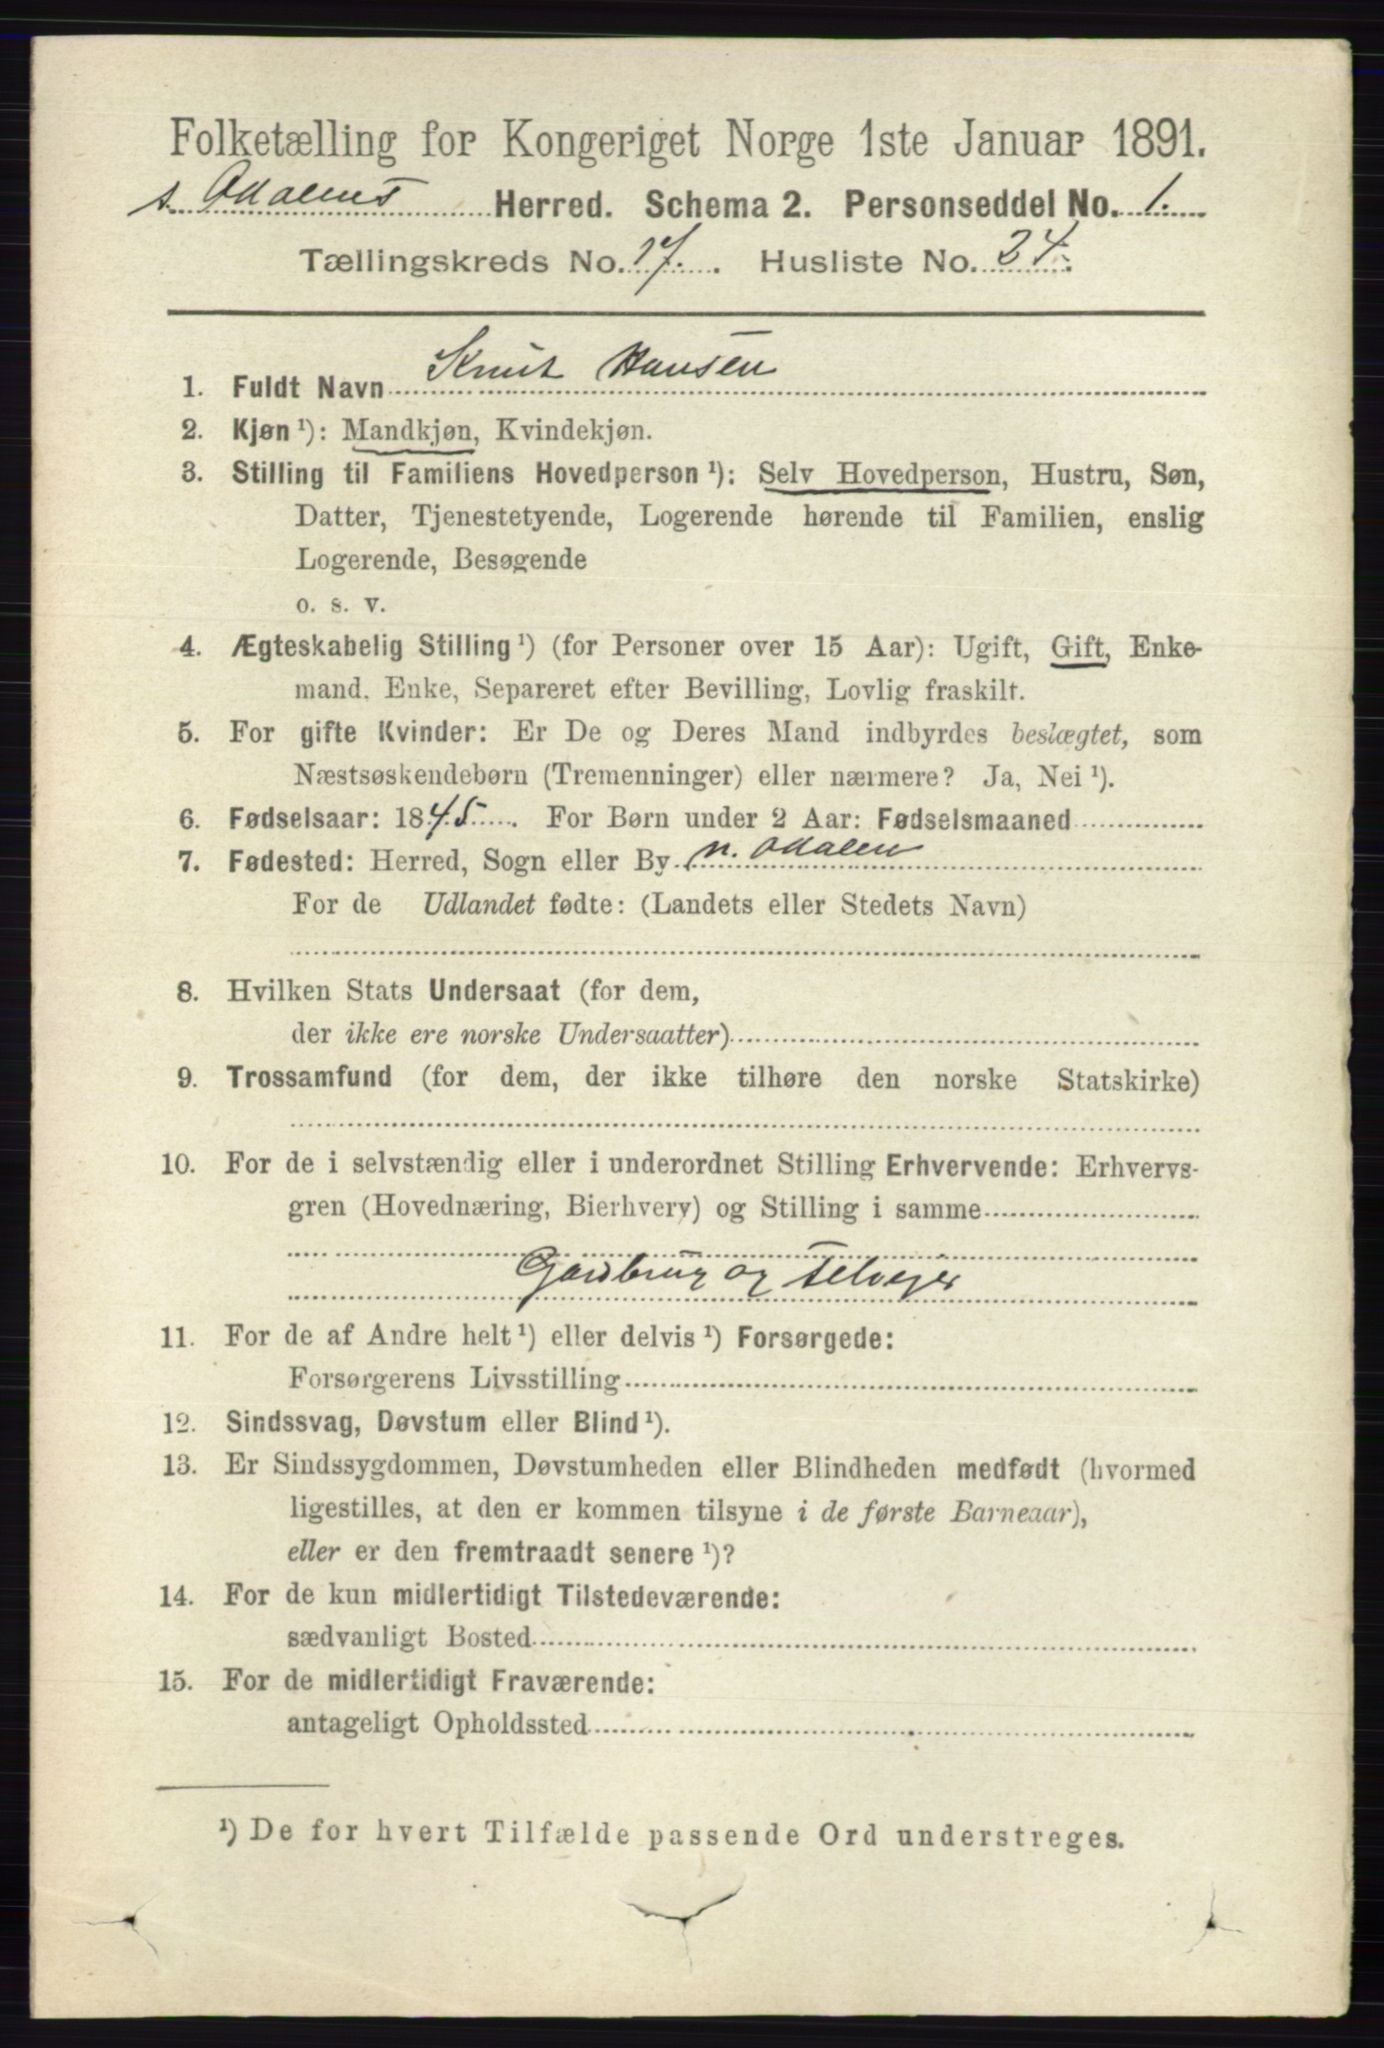 Folketælling for Kongeriget Norge 1ste Januar 1891.
s. Odalens Herred. Schema 2. Personseddel No. 1.
Tællingskreds No. 17. Husliste No. 24.
1. Fuldt Navn Knut Hansen
2. Kjøn ¹): Mandkjøn, Kvindekjøn.
3. Stilling til Familiens Hovedperson ¹): Selv Hovedperson, Hustru, Søn,
Datter, Tjenestetyende, Logerende hørende til Familien, enslig
Logerende, Besøgende
o. s. v.
4. Ægteskabelig Stilling ¹) (for Personer over 15 Aar): Ugift, Gift, Enke-
mand, Enke, Separeret efter Bevilling, Lovlig fraskilt.
5. For gifte Kvinder: Er De og Deres Mand indbyrdes beslægtet, som
Næstsøskendebørn (Tremenninger) eller nærmere? Ja, Nei ¹).
6. Fødselsaar: 1845. For Børn under 2 Aar: Fødselsmaaned
7. Fødested: Herred, Sogn eller By n. Odalen
For de Udlandet fødte: (Landets eller Stedets Navn)
8. Hvilken Stats Undersaat (for dem,
der ikke ere norske Undersaatter)
9. Trossamfund (for dem, der ikke tilhøre den norske Statskirke)
10. For de i selvstændig eller i underordnet Stilling Erhvervende: Erhvervs-
gren (Hovednæring, Bierhverv) og Stilling i samme
Gardbrug og Selveier
11. For de af Andre helt ¹) eller delvis ¹) Forsørgede:
Forsørgerens Livsstilling
12. Sindssvag, Døvstum eller Blind ¹).
13. Er Sindssygdommen, Døvstumheden eller Blindheden medfødt (hvormed
ligestilles, at den er kommen tilsyne i de første Barneaar),
eller er den fremtraadt senere ¹)?
14. For de kun midlertidigt Tilstedeværende:
sædvanligt Bosted
15. For de midlertidigt Fraværende:
antageligt Opholdssted
¹) De for hvert Tilfælde passende Ord understreges.